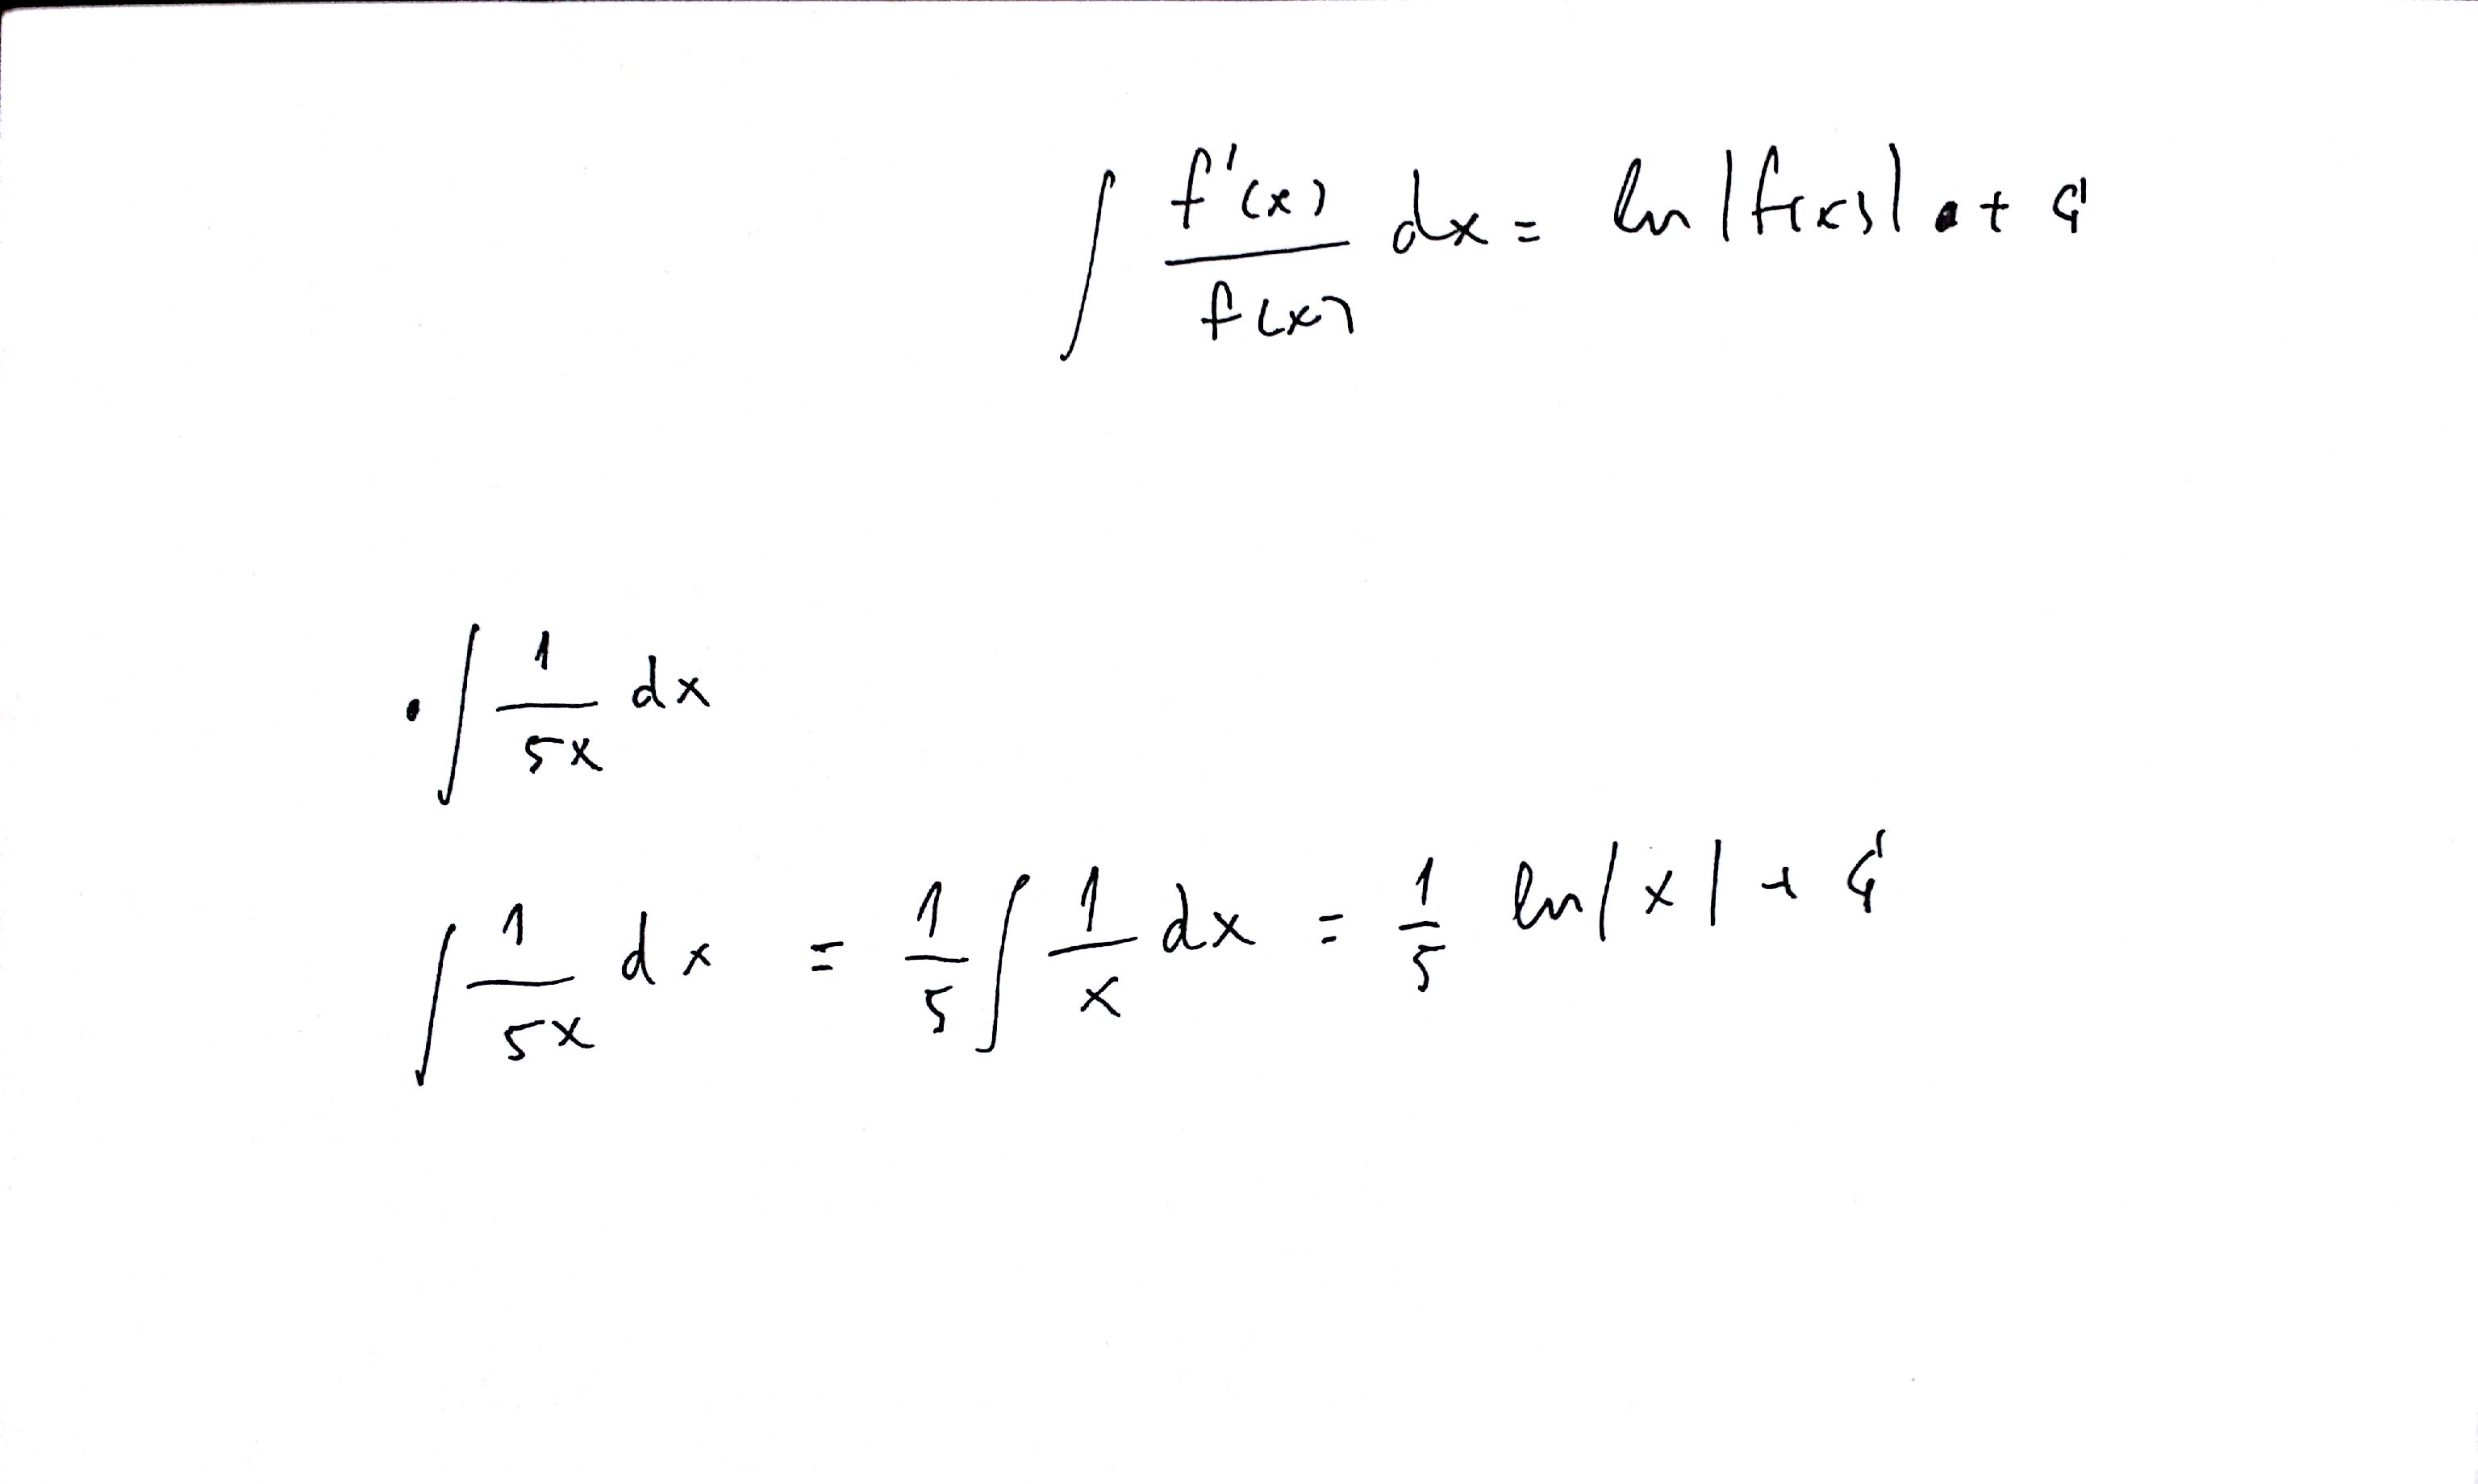 ∫ f'(x)/f(x) dx = ln |f(x)| + C
• ∫ 1/5x dx
∫ 1/5x dx = 1/5 ∫ 1/x dx = 1/5 ln |x| + C